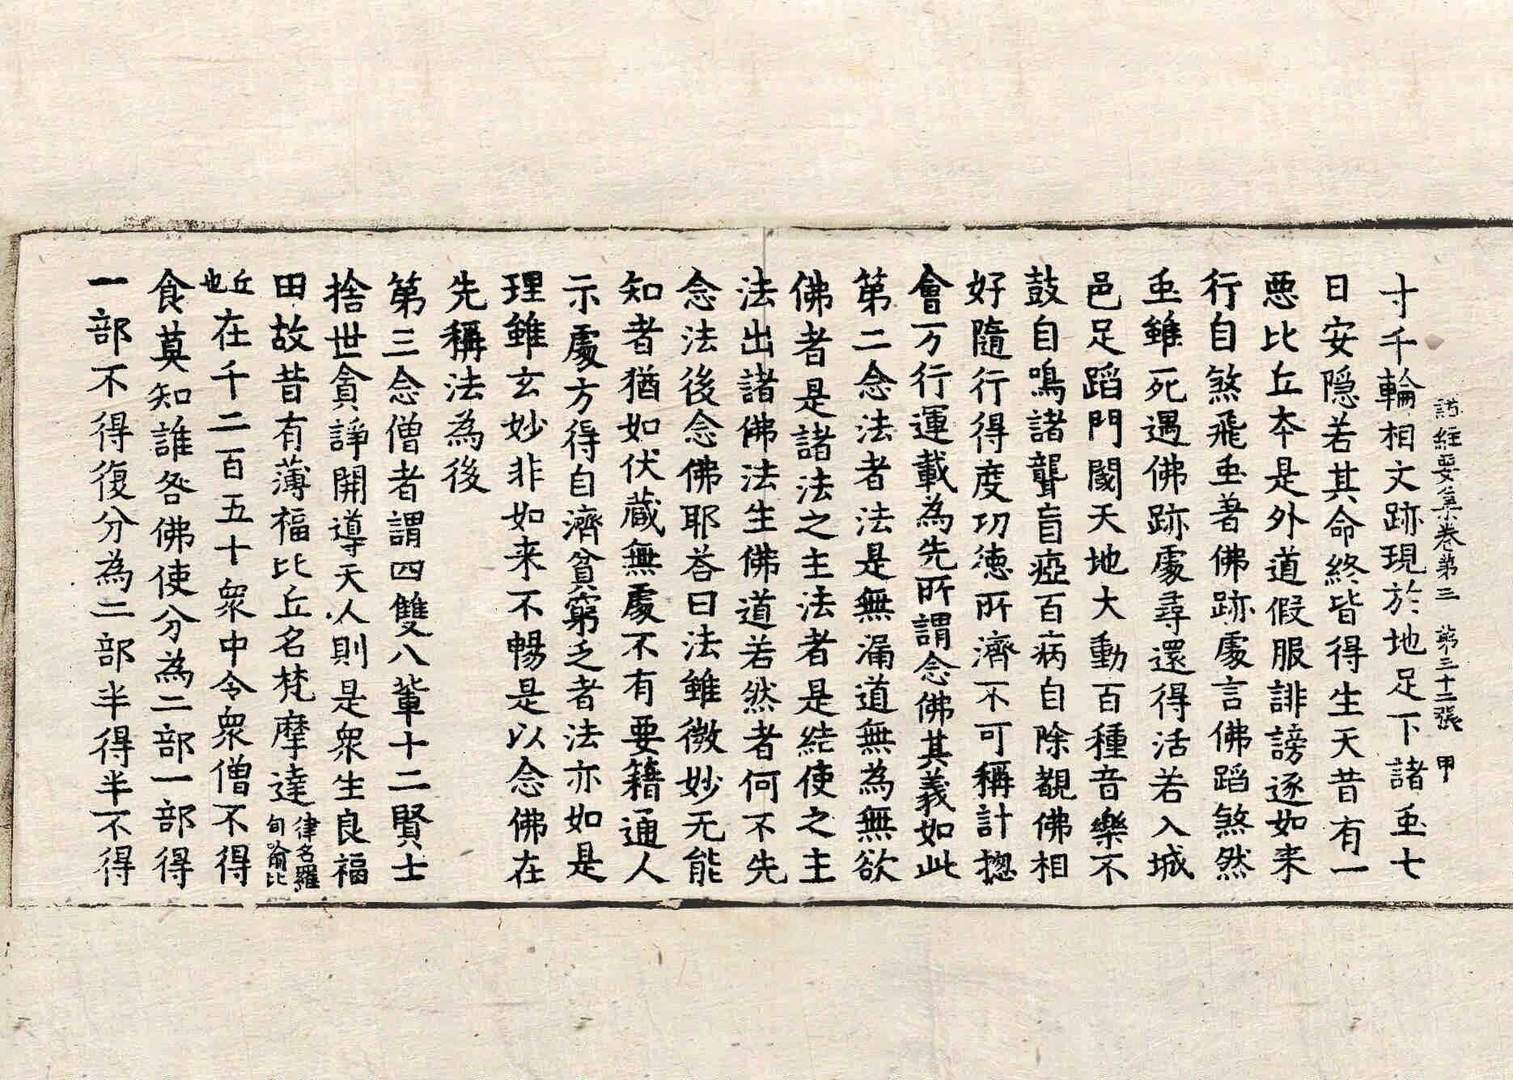 諸經要集卷第三　第三十二張　甲
寸千輪相文跡現於地足下諸虫七
日安隱若其命終皆得生天昔有一
惡比丘本是外道假服誹謗逐如来
行自煞飛虫著佛跡處言佛蹈煞然
虫雖死遇佛跡處尋還得活若入城
邑足蹈門閫天地大動百種音樂不
鼓自鳴諸聾盲瘂百病自除覩佛相
好隨行得度功德所濟不可稱計揔
會万行運載為先所謂念佛其義如此
第二念法者法是無漏道無為無欲
佛者是諸法之主法者是結使之主
法出諸佛法生佛道若然者何不先
念法後念佛耶荅曰法雖微妙无能
知者猶如伏藏無處不有要籍通人
示處方得自濟貧窮乏者法亦如是
理雖玄妙非如来不暢是以念佛在
先稱法為後
第三念僧者謂四雙八輩十二賢士
捨世貪諍開導天人則是衆生良福
田故昔有薄福比丘名梵摩達律名羅旬喻比
丘也在千二百五十衆中令衆僧不得
食莫知誰咎佛使分為二部一部得
一部不得復分為二部半得半不得